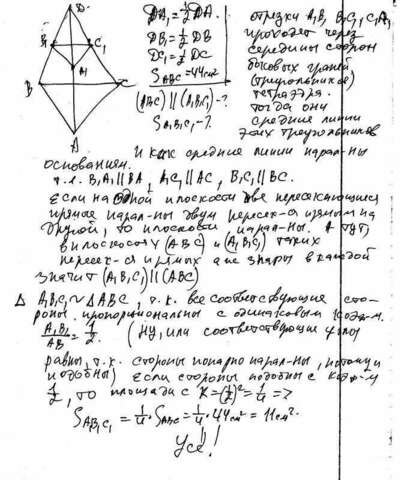 D
B₁ C₁
A₁
B C
A
DA₁=½DA.
DB₁=½DB
DC₁=½DC
S ABC=44см²
(ABC)||(A₁B₁C₁)-?
S A₁B₁C₁-?
отрезки A₁B₁ B₁C₁, C₁A₁
проходят через
середины сторон
боковых граней
(треугольников)
тетраэдра.
тогда они
средние линии
этих треугольников
и как средние линии парал-ны
основаниям.
т.е. B₁A₁||BA, A₁C₁||AC, B₁C₁||BC.
Если на одной плоскости две пересекающиеся
прямые парал-ны двум пересек-ся прямым на
другой, то плоскости парал-ны. А тут
в плоскости (ABC) и (A₁B₁C₁) таких
пересек-ся прямых аже 3 пары в каждой
значит (A₁B₁C₁)||(ABC)
Δ A₁B₁C₁~ΔABC, т.к. все соответствующие сто-
роны пропорциональны с одинаковым коэф-м.
A₁B₁/AB=1/2. (ну, или соответствующие углы
равны, т.к. стороны попарно парал-ны, потому и
подобны) Если стороны подобны с коэф-м
½, то площади с K=(½)²=¼ =>
S A₁B₁C₁ = ¼·S ABC=¼·44см²=11см².
Усё!